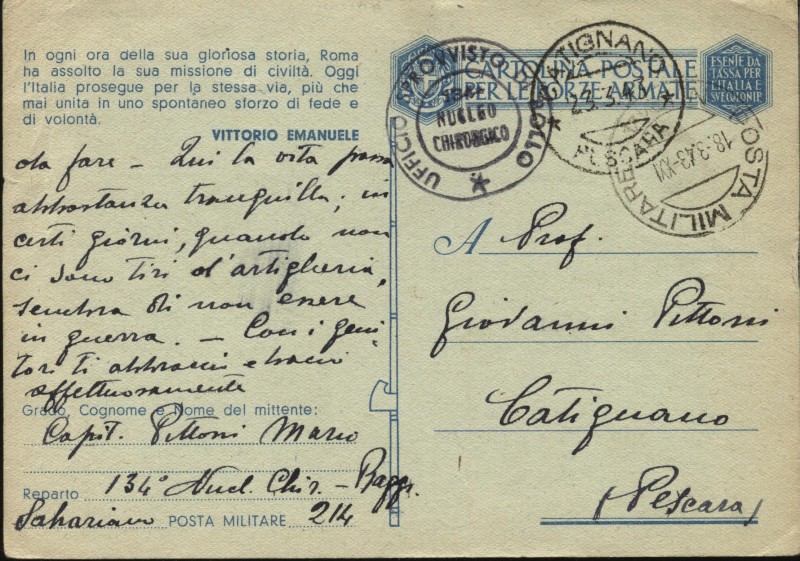 In ogni ora della sua gloriosa storia, Roma
ha assolto la sua missione di civiltà. Oggi
l'Italia prosegue per la stessa via, più che
mai unita in uno spontaneo sforzo di fede e
di volontà.
VITTORIO EMANUELE
da fare - Qui la vita passa
abbastanza tranquilla; in
certi giorni, quando non
ci sono tiri d'artiglieria,
sembra di non essere
in guerra. - Con i geni
tori ti abbraccio e bacio
affettuosamente
Grado, Cognome e Nome del mittente:
Capit. Pittoni Mario
Reparto 134° Nucl. Chir. - Ragg.
Sahariano POSTA MILITARE 214
UFFICIO PROVVISTO BOLLO
NUCLEO
CHIRURGICO
CARTOLINA POSTALE
PER LE FORZE ARMATE
ESENTE DA
TASSA PER
L'ITALIA E
CATIGNANO
23.3.43
PESCARA
POSTA MILITARE
18.3.43.XXI
A Prof.
Giovanni Pittoni
Catignano
(Pescara)